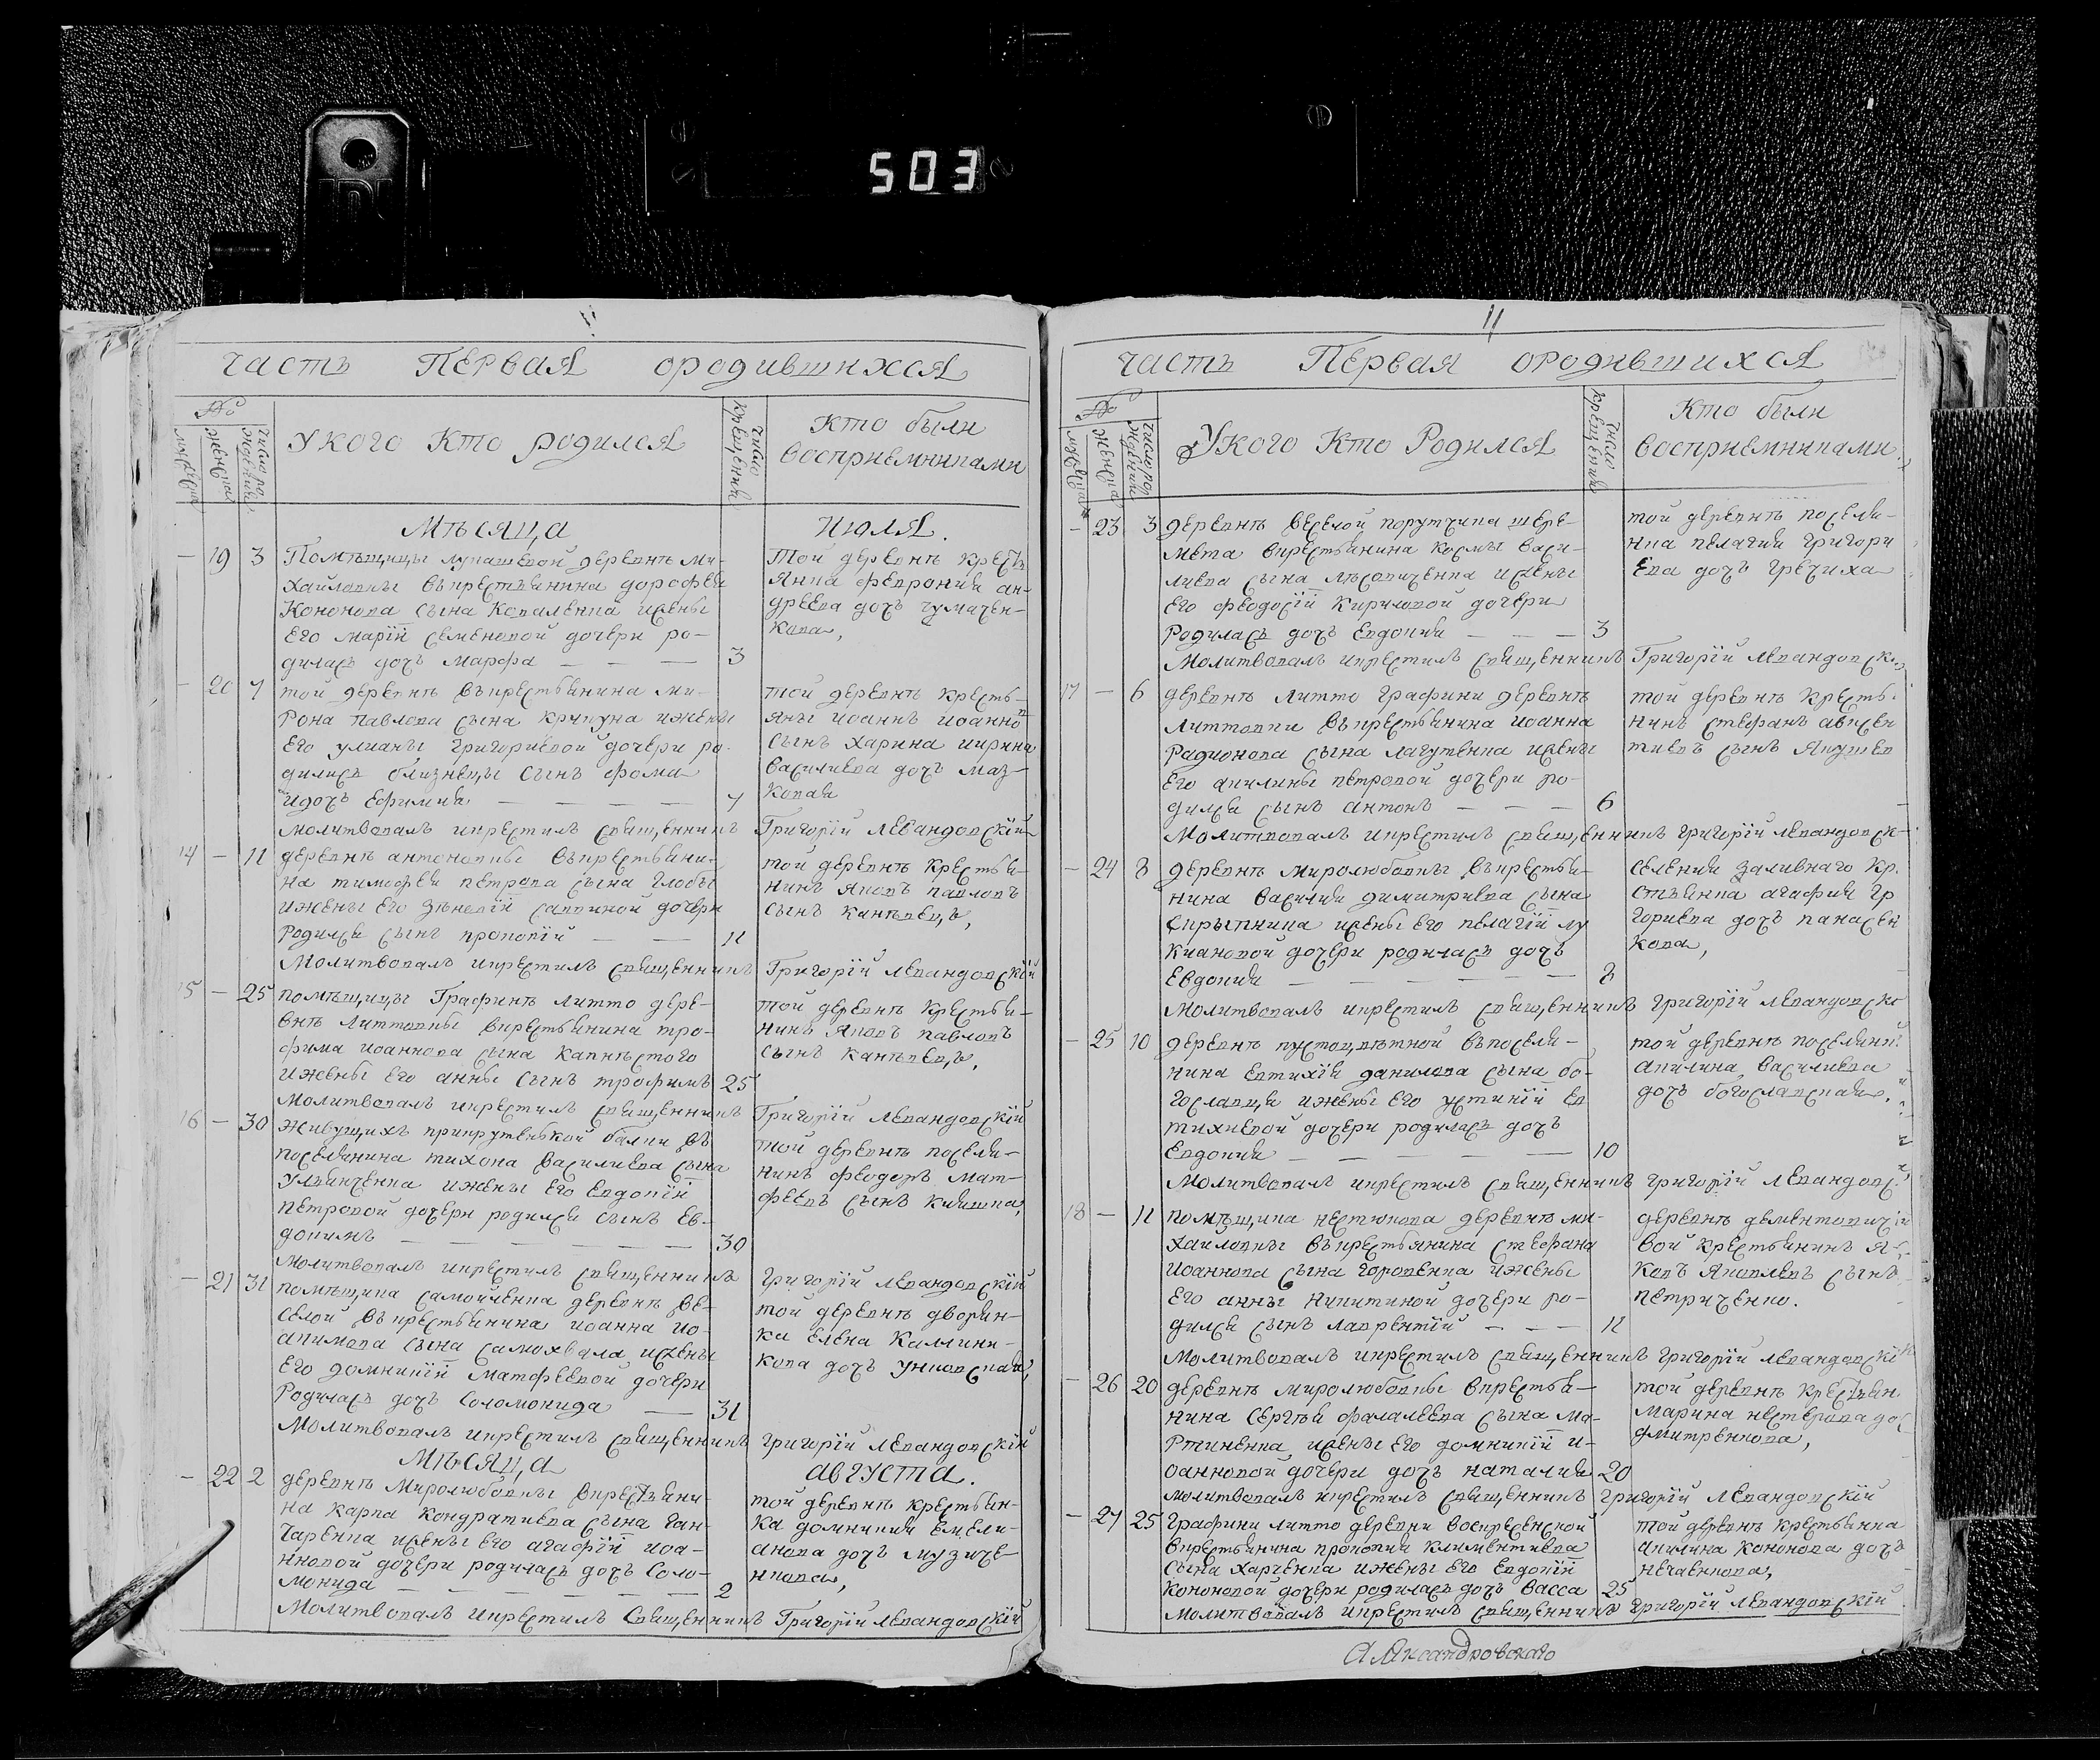 503
Часть Первая ородившихся
№
мужеска
женска
число рождения
У кого Кто родился
число крещения
Кто были
восприемниками
Мѣсяца Июля.
— 19 3 Помѣщицы лукашевой деревнѣ Ми-
хайловны въкрестьянина дорофея
Кононова сына Коваленка ижены
Его марїй семеновой дочери ро-
дилась дочь марфа — — — 3
Той деревнѣ крестья
янка феврония ан-
дреева дочь чумачен-
кова,
— 20 7 той деревнѣ въкрестьянина ми-
рона павлова сына крикуна ижены
Его улианы григориевой дочери ро-
дились близнецы сынъ фома
идочь Ефимия — — — — 7
той деревнѣ кресть-
яны иоаннъ иоанно
сынъ харина иирина
василиева дочь маз-
ковая
молитвовалъ икрестилъ священникъ Григорїй Левандовскїй
14 — 11 деревнѣ антоновны въкрестьяни-
на тимофея петрова сына глобы
ижены его Зѣновїй саввиной дочери
родился сынъ прокопїй — — 11
той деревнѣ крестья-
нинъ яковъ павловъ
сынъ канѣвецъ,
Молитвовалъ икрестилъ священникъ Григорїй Левандовскїй
15 — 25 помѣщицы Графинѣ литто дере-
внѣ Литтовны вкрестьянина тро-
фима иоаннова сына капнѣстого
ижены его анны сынъ трофимъ 25
той деревнѣ крестья-
нинъ яковъ павловъ
сынъ канѣвецъ,
Молитвовалъ икрестилъ священникъ Григорїй Левандовскїй
16 — 30 живущихъ прикрутенькой балки въ
поселянина тихона василиева сына
ульянченка ижены его Евдокїй
петровой дочери родился сынъ Ев-
докимъ — — — — — 30
той деревнѣ поселя-
нинъ феодоръ мат-
феевъ сынъ кияшка,
Молитвовалъ икрестилъ священникъ Григорїй Левандовскїй
— 21 31 помѣщика самойленка деревнѣ ве-
селой въкрестьянина иоанна ио-
акимова сына самохвала ижены
Его домникїй матфеевой дочери
родилась дочь Соломонида — 31
той деревнѣ дворян-
ка елена Калини-
кова дочь
Молитвовалъ икрестилъ священникъ григорїй левандовскїй
Мѣсяца августа.
— 22 2 деревнѣ Миролюбовны вкрестьяни-
на карпа кондратиева сына ган-
чаренка ижены его агафїй иоа-
нновой дочери родилась дочь Соло-
монида — — — — 2
той деревнѣ крестьян-
ка домникия емели-
анова дочь музиче-
нкова,
Молитвовалъ икрестилъ Священникъ Григорїй Левандовскїй
11
Часть Первая ородившихся
№
мужеска
женска
число рождения
У кого Кто Родился
число крещения
Кто были
восприемниками
— 23 3 деревнѣ веселой порутчика шере-
мета вкрестьянина космы васи-
лиева сына лѣсовиченка ижены
его феодосїй кириловой дочери
родилась дочь Евдокия — — — 3
той деревнѣ поселя-
нка пелагия григори
ева дочь гречиха
Молитвовалъ икрестилъ священникъ Григорїй левандовск
17 — 6 деревнѣ литто графини деревнѣ
литтовки въкрестьянина иоанна
радионова сына лагутенка ижены
его акилины петровой дочери ро-
дился сынъ антонъ — — — 6
той деревнѣ кресть
нинъ стефанъ авксен
тиевъ сынъ якушев
Молитвовалъ икрестилъ священникъ григорїй левандовск
— 24 8 деревнѣ миролюбовны въкрестья-
нина василия димитриева сына
скрыпника ижены его пелагїй лу
киановой дочери родилась дочь
Евдокия — — — — — 8
селения заливнаго кр.
стьянка агафия гр
гориева дочь панасен
кова,
Молитвовалъ икрестилъ священникъ григорїй левандовск
— 25 10 деревнѣ пустоцвѣтной въпоселя-
нина евтихїя данилова сына бо-
гославця ижены его устинїй ев
тихиевой дочери родилась дочь
Евдокия — — — — — 10
той деревнѣ поселянк
акилина василиева
дочь богославская,
Молитвовалъ икрестилъ священникъ григорїй левандовс
18 — 11 помѣщика нестюкова деревнѣ ми-
хайловны въкрестьянина стефана
иоаннова сына горовенка ижены
Его анны никитиной дочери ро-
дился сынъ лаврентїй — — — 11
вой крестьянинъ я-
ковъ яковлевъ сынъ
петриченко.
Молитвовалъ икрестилъ священникъ григорїй левандовскїй
— 26 20 деревнѣ миролюбовны вкрестья-
нина сергѣя фалалеева сына ма-
ртиненка ижены его домникїй и-
оанновой дочери дочь наталия 20
той деревнѣ крестьян
марина нестерова до
дмитренкова,
молитвовалъ икрестилъ священникъ григорїй левандовскїй
— 27 25 графини литто деревни воскресенской
вкрестьянина прокопия климентиева
сына харченка ижены его Евдокїй
кононовой дочери родилась дочь васса 25
той деревнѣ крестьянка
акилина кононова дочь
нечаенкова,
молитвовалъ икрестилъ священникъ григорїй левандовскїй
Александровскаго